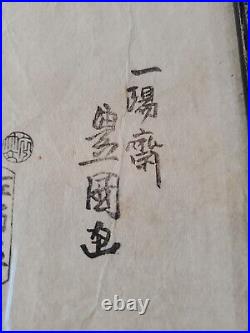 一陽齋
豊國画